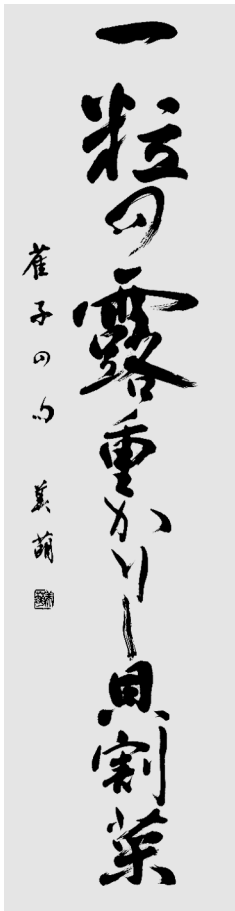 一粒の露重かりし貝割菜
萑子の句 美萌